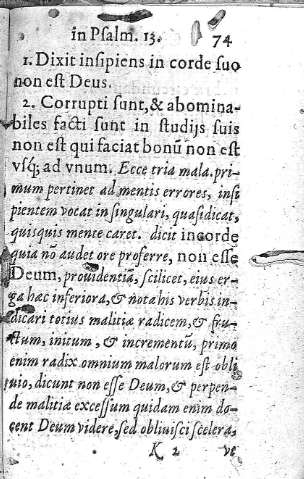 in Psalm. 13. 74
1. Dixit insipiens in corde suo
non est Deus.
2. Corrupti sunt, & abomina-
biles facti sunt in studijs suis
non est qui faciat bonũ non est
vsq; ad vnum. Ecce tria mala. pri-
mum pertinet ad mentis errores, insi
pientem vocat in singulari, quasi dicat,
quisquis mente caret. dicit in corde
quia nõ audet ore proferre, non esse
Deum, prouidentiã, scilicet, eius er-
ga hæc inferiora, & nota his verbis in-
dicari totius malitiæ radicem, & fru-
ctum, initum, & incrementũ, primo
enim radix omnium malorum est obli
uio, dicunt non esse Deum, & perpen-
de malitiæ excessum quidam enim do-
cent Deum videre, sed obliuisci scelera,
K 2 ve